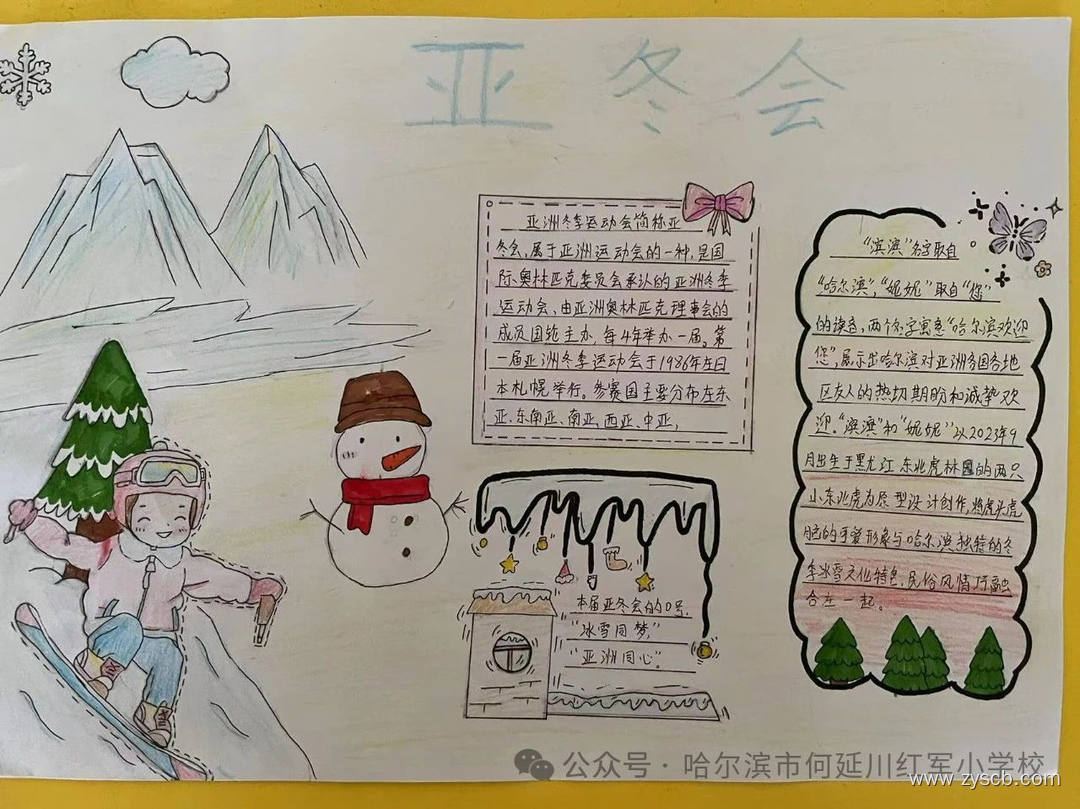 亚冬会
亚洲冬季运动会简称亚
冬会,属于亚洲运动会的一种,是国
际奥林匹克委员会承认的亚洲冬季
运动会,由亚洲奥林匹克理事会的
成员国轮主办,每4年举办一届。第
一届亚洲冬季运动会于1986年在日
本札幌举行。参赛国主要分布在东
亚、东南亚、南亚、西亚、中亚,
本届亚冬会的口号,
“冰雪同梦,”
“亚洲同心”。
“滨滨”名字取自
“哈尔滨”,“妮妮”取自“您”
的读音,两个名字寓意“哈尔滨欢迎
您”,展示出哈尔滨对亚洲各国各地
区友人的热切期盼和诚挚欢
迎。“滨滨”和“妮妮”以2023年9
月出生于黑龙江东北虎林园的两只
小东北虎为原型设计创作,将虎头虎
脑的可爱形象与哈尔滨独特的冬
季冰雪文化特色,民俗风情巧融
合在一起。
公众号·哈尔滨市何延川红军小学校
www.zyscb.com